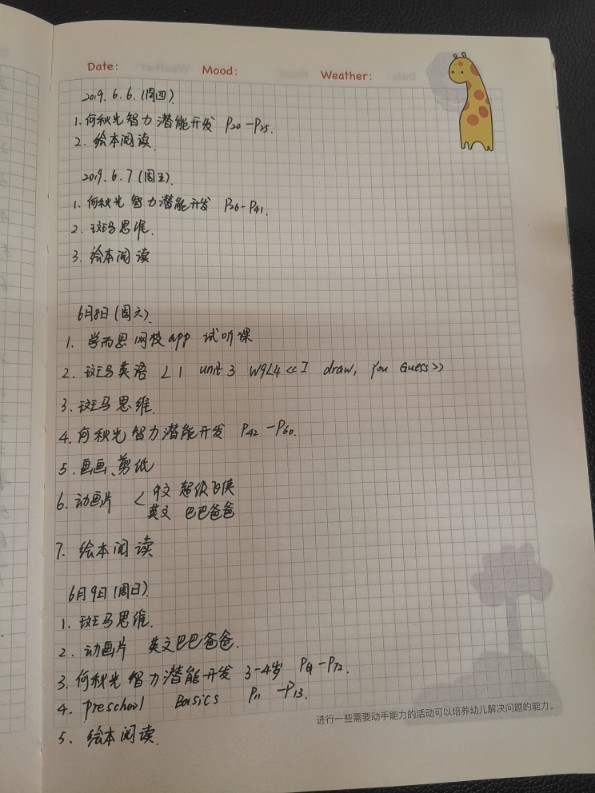 Date: Mood: Weather:
2019.6.6.(周四).
1.何秋光智力潜能开发 P20-P25.
2.绘本阅读.
2019.6.7(周五).
1.何秋光智力潜能开发 P26-P41.
2.斑马思维.
3.绘本阅读
6月8日(周六).
1.学而思网校app 试听课
2.斑马英语 L1 unit 3 W9L4 <<I draw, you Guess>>
3.斑马思维.
4.何秋光智力潜能开发 P42-P60.
5.画画、剪纸
6.动画片 < 中文 超级飞侠
英文 巴巴爸爸
7.绘本阅读
6月9日(周日).
1.斑马思维.
2.动画片 英文巴巴爸爸.
3.何秋光智力潜能开发 3-4岁 P61-P72.
4.Preschool Basics P11-P13.
进行一些需要动手能力的活动可以培养幼儿解决问题的能力。
5.绘本阅读.